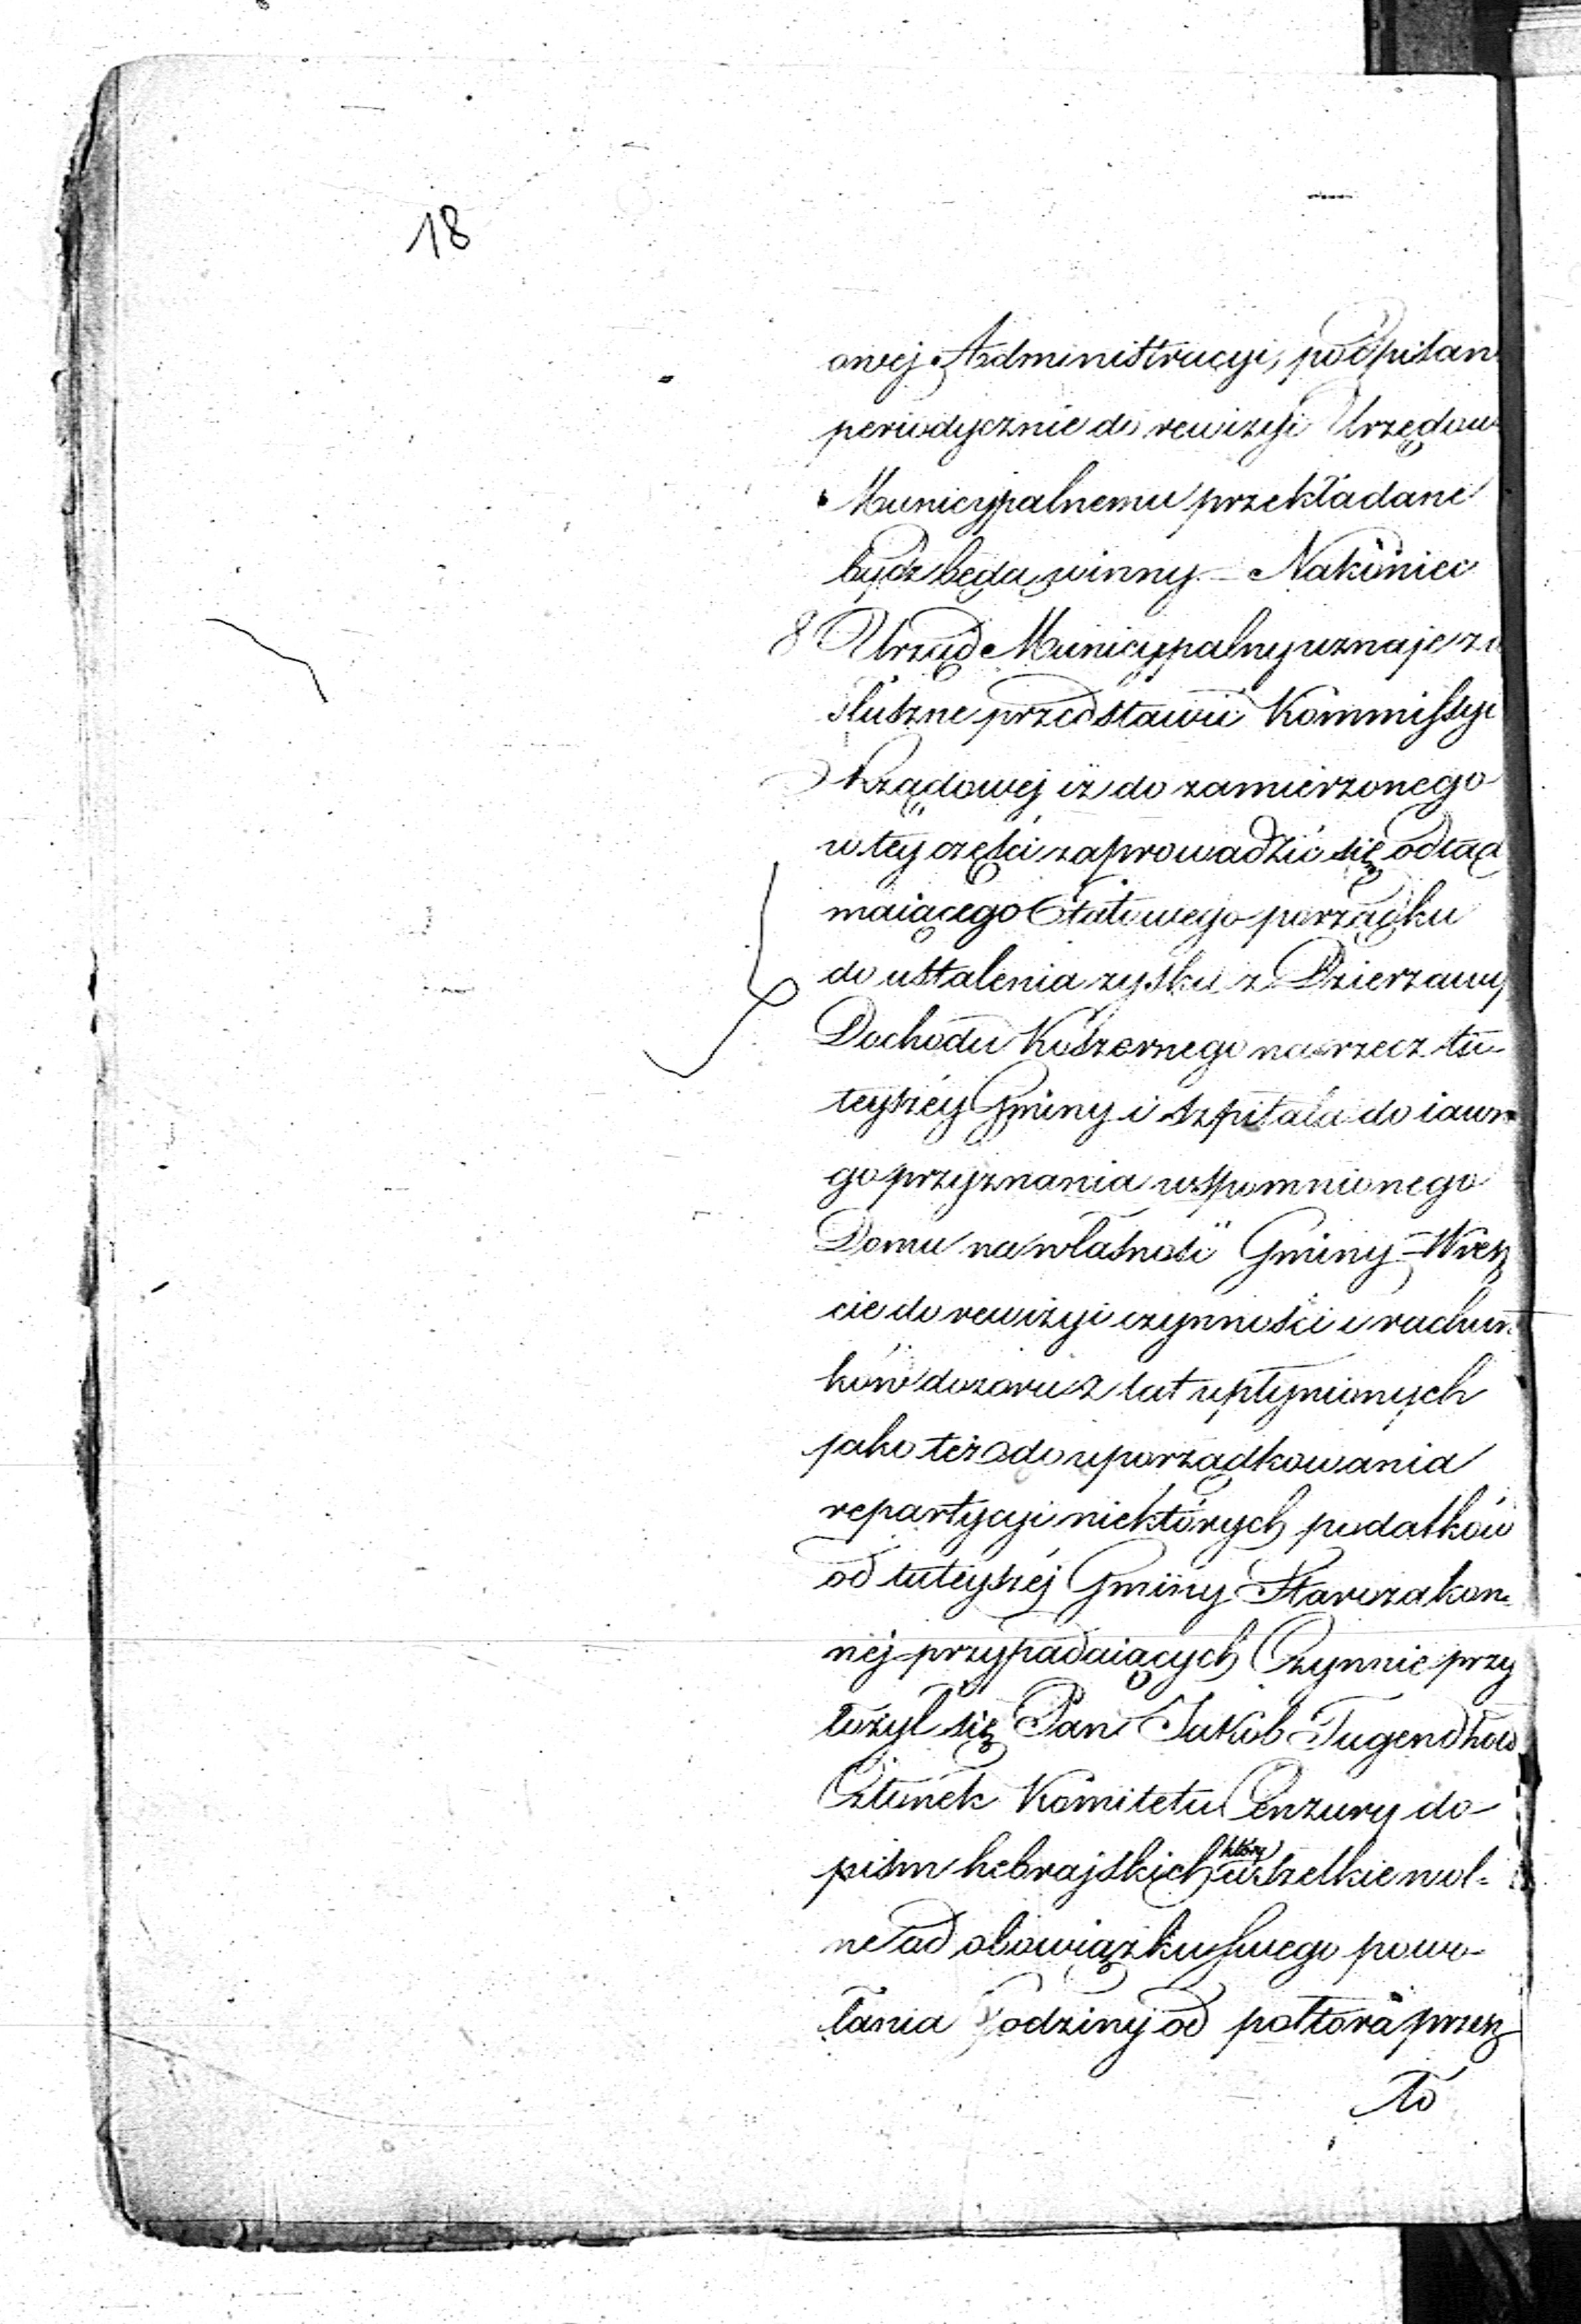 18
owej Administracyi, podpisan
periodycznie do rewizyi Urzędow
Municypalnemu przekładane
bydź będą winny. – Nakoniec
8 Urząd Municypalny uznaje za
słuszne przedstawić Kommissyi
Rządowej iż do zamierzonego
w tey części zaprowadzić się odtąd
maiącego Etatowego porządku
do ustalenia zysku z Dzierzawy
Dochodu Koszernego na rzecz tu-
teyszéy Gminy i Szpitala do iawn
go przyznania wspomnionego
Domu na własność Gminy – Wresz
cie do rewizyi czynności i rachun
ków dozoru z lat upłynionych
jako też do uporządkowania
repartycyi niektórych podatków
od tuteyszéj Gminy Starozakon
néj przypadaiących Czynnie przy
łożył się Pan Jakób Tugendhold
Członek Komitetu Cenzury do
pism hebrajskich który wszelkie wol-
ne od obowiązku swego powo-
łania godziny od półtora przesz
ło